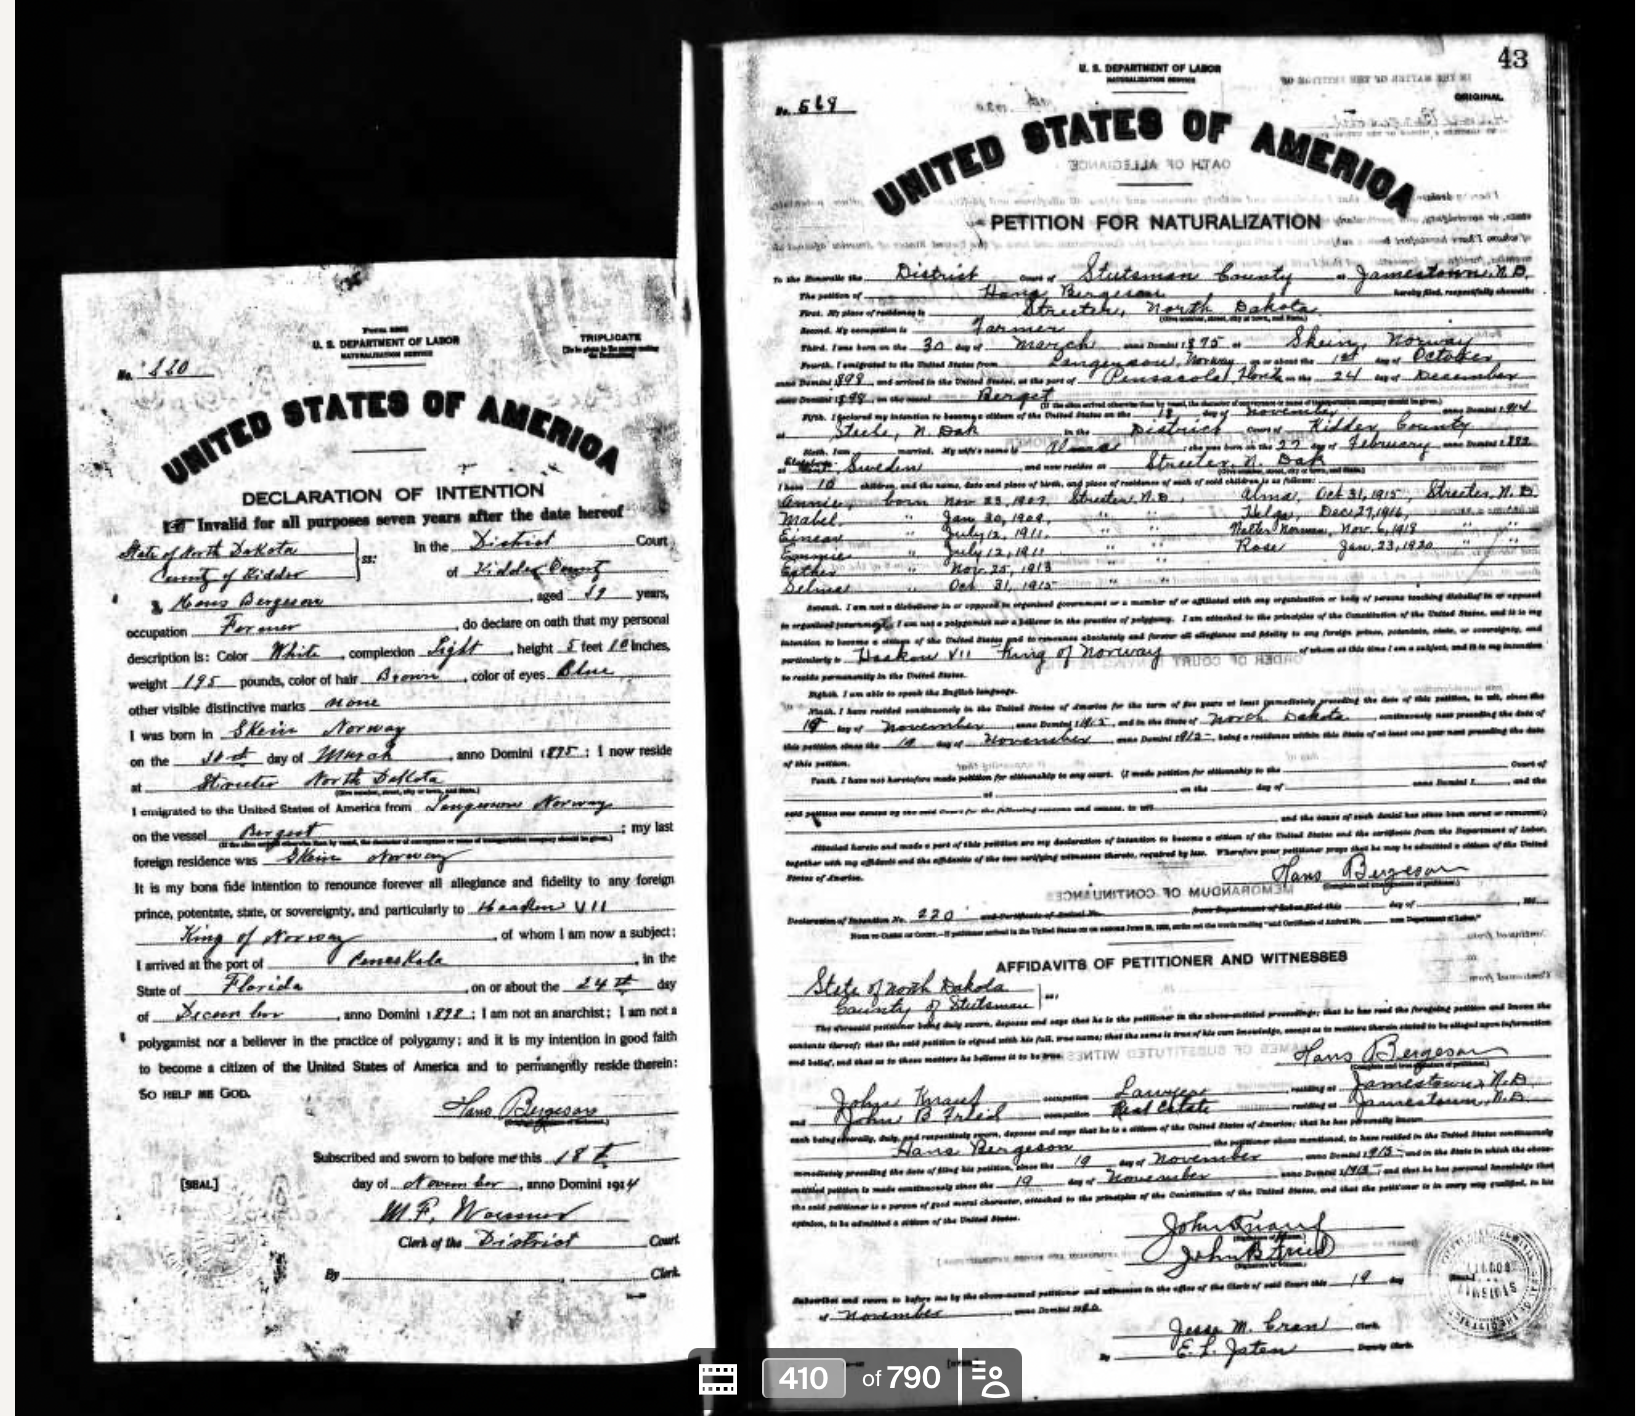 Form 2202
U. S. DEPARTMENT OF LABOR
NATURALIZATION SERVICE
TRIPLICATE
No. 220
UNITED STATES OF AMERICA
DECLARATION OF INTENTION
Invalid for all purposes seven years after the date hereof
State of North Dakota
County of Kidder
ss:
In the District Court
of Kidder County
I, Hans Bergeson, aged 39 years,
occupation Farmer, do declare on oath that my personal
description is: Color White, complexion Light, height 5 feet 10 inches,
weight 195 pounds, color of hair Brown, color of eyes Blue,
other visible distinctive marks none
I was born in Skein Norway
on the day of March, anno Domini 1875; I now reside
at Streeter North Dakota
(Give number, street, city or town, and State.)
I emigrated to the United States of America from Norway
on the vessel; my last
(If the alien arrived otherwise than by vessel, the character of conveyance or name of transportation company should be given.)
foreign residence was Skein Norway
It is my bona fide intention to renounce forever all allegiance and fidelity to any foreign
prince, potentate, state, or sovereignty, and particularly to Haakon VII
King of Norway, of whom I am now a subject;
I arrived at the port of Peneskola, in the
State of Florida, on or about the 24th day
of December, anno Domini 1898; I am not an anarchist; I am not a
polygamist nor a believer in the practice of polygamy; and it is my intention in good faith
to become a citizen of the United States of America and to permanently reside therein:
SO HELP ME GOD.
Hans Bergeson
Subscribed and sworn to before me this 18th
[SEAL]
day of November, anno Domini 1914
M. F.
Clerk of the District Court.
By , Clerk.
43
U. S. DEPARTMENT OF LABOR
NATURALIZATION SERVICE
ORIGINAL
No. 568
UNITED STATES OF AMERICA
PETITION FOR NATURALIZATION
To the Honorable the District Court of Stutsman County at Jamestown, N.D.
The petition of Hans Bergeson hereby filed, respectfully showeth:
First. My place of residence is Streeter, North Dakota.
(Give number, street, city or town, and State.)
Second. My occupation is Farmer
Third. I was born on the 30 day of March anno Domini 1875 at Skein, Norway
Fourth. I emigrated to the United States from Norway on or about the 1st day of October
anno Domini 1898 and arrived in the United States, at the port of Pensacola on the 24 day of December
anno Domini 1898, on the vessel Berget
(If the alien arrived otherwise than by vessel, the character of conveyance or name of transportation company should be given.)
Fifth. I declared my intention to become a citizen of the United States on the 18 day of November anno Domini 1914
at Steele, N. Dak in the District Court of Kidder County
Sixth. I am married. My wife's name is Alma; she was born on the 27 day of February anno Domini 1882
at Sweden, and now resides at Streeter, N. Dak
(Give number, street, city or town, and State.)
I have 10 children, and the name, date and place of birth, and place of residence of each of said children is as follows:
Annie, born Nov 23, 1907, Streeter, N.D., Alma, Oct 31, 1915, Streeter, N.D.
Mabel, " Jan 30, 1909, " " Helga, Dec 27, 1916, " "
Einar " July 12, 1911, " " Walter Norman, Nov. 6, 1918 " "
Emmie " July 12, 1911 " " Rose Jan. 23, 1920 " "
Esther " Nov. 25, 1913 " "
Selma " Oct. 31, 1915 " "
Seventh. I am not a disbeliever in or opposed to organized government or a member of or affiliated with any organization or body of persons teaching disbelief in or opposed
to organized government. I am not a polygamist nor a believer in the practice of polygamy. I am attached to the principles of the Constitution of the United States, and it is my
intention to become a citizen of the United States and to renounce absolutely and forever all allegiance and fidelity to any foreign prince, potentate, state, or sovereignty, and
particularly to Haakon VII King of Norway of whom at this time I am a subject, and it is my intention
to reside permanently in the United States.
Eighth. I am able to speak the English language.
Ninth. I have resided continuously in the United States of America for the term of five years at least immediately preceding the date of this petition, to wit, since the
19 day of November anno Domini, and in the State of North Dakota continuously next preceding the date of
this petition since the 19 day of November anno Domini, being a residence within this State of at least one year next preceding the date
of this petition.
Tenth. I have not heretofore made petition for citizenship to any court. (I made petition for citizenship to the Court of
at on the day of anno Domini 1 , and the
said petition was denied by the said Court for the following reasons and causes, to wit
and the cause of such denial has since been cured or removed.)
Attached hereto and made a part of this petition are my declaration of intention to become a citizen of the United States and the certificate from the Department of Labor,
together with my affidavit and the affidavits of the two verifying witnesses thereto, required by law. Wherefore your petitioner prays that he may be admitted a citizen of the United
States of America.
Hans Bergeson
(Complete and true signature of petitioner.)
MEMORANDUM OF CONTINUANCES
Declaration of Intention No. 220 and Certificate of Arrival No. from Department of Labor filed this day of
AFFIDAVITS OF PETITIONER AND WITNESSES
State of North Dakota
County of Stutsman
ss:
The aforesaid petitioner being duly sworn, deposes and says that he is the petitioner in the above-entitled proceedings; that he has read the foregoing petition and knows the
contents thereof; that the said petition is signed with his full, true name; that the same is true of his own knowledge, except as to matters therein stated to be alleged upon information
and belief, and that as to those matters he believes it to be true.
Hans Bergeson
(Complete and true signature of petitioner.)
John Knauf occupation Lawyer residing at Jamestown, N.D.
and John B Fried occupation Real Estate residing at Jamestown, N.D.
each being severally, duly, and respectively sworn, deposes and says that he is a citizen of the United States of America; that he has personally known
Hans Bergeson, the petitioner above mentioned, to have resided in the United States continuously
immediately preceding the date of filing his petition, since the 19 day of November anno Domini 1915 and in the State in which the above-
entitled petition is made continuously since the 19 day of November anno Domini 1915; and that he has personal knowledge that
the said petitioner is a person of good moral character, attached to the principles of the Constitution of the United States, and that the petitioner is in every way qualified, in his
opinion, to be admitted a citizen of the United States.
John Knauf
John B Fried
Subscribed and sworn to before me by the above-named petitioner and witnesses in the office of the Clerk of said Court this 19 day
of November anno Domini 1920.
Jesse M. Clerk.
By E. L. Deputy Clerk.
410 of 790